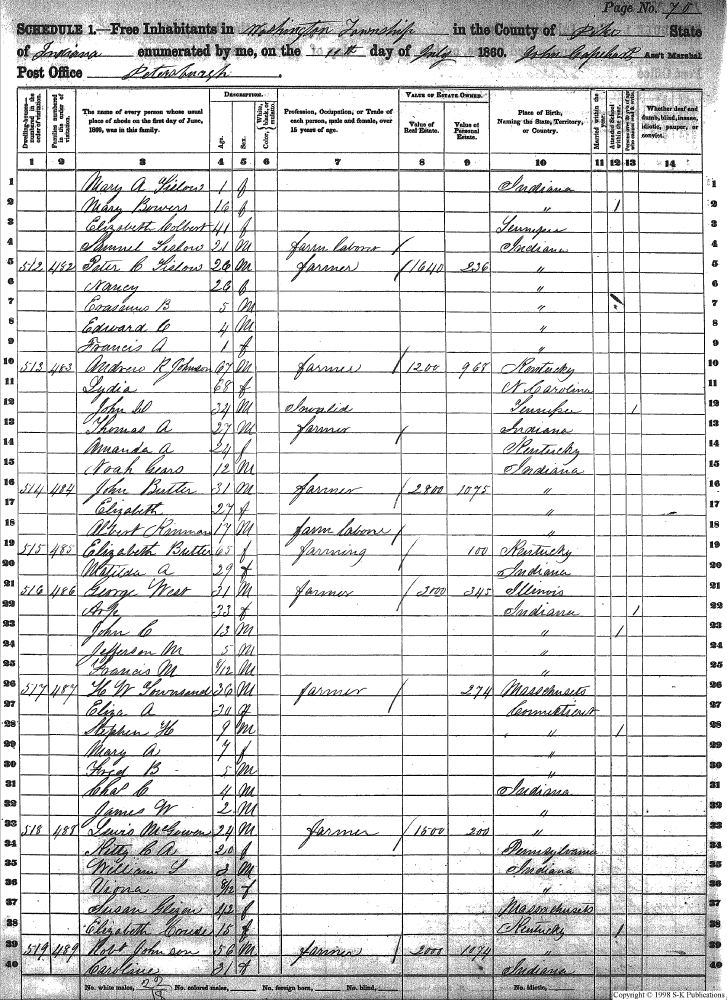 Page No. 70
SCHEDULE 1.—Free Inhabitants in Washington Township in the County of Pike State
of Indiana enumerated by me, on the 11th day of July 1860. John Capehart Ass't Marshal
Post Office Petersburgh.
DESCRIPTION. VALUE OF ESTATE OWNED.
Dwelling-houses—numbered in the order of visitation. Families numbered in the order of visitation. The name of every person whose usual place of abode on the first day of June, 1860, was in this family. Age. Sex. Color, Profession, Occupation, or Trade of each person, male and female, over 15 years of age. Value of Real Estate. Value of Personal Estate. Place of Birth, Naming the State, Territory, or Country. Married within the year. Attended School within the year. Whether deaf and dumb, blind, insane, idiotic, pauper, or convict.
1 2 3 4 5 6 7 8 9 10 11 12 13 14
1 Mary A Sislow 1 f Indiana 1
2 Mary Bowers 16 f " 1 2
3 Elizabeth Colbert 41 f Tennessee 3
4 Samuel Sislow 21 M farm labour / Indiana 4
5 512 482 Peter C Sislow 26 M farmer / 1640 236 " 5
6 Nancy 26 f " 6
7 Erasmus B 5 M " / 7
8 Edward C 4 M " 8
9 Francis A 1 f " 9
10 513 483 Andrew R Johnson 67 M farmer / 1200 968 Kentucky 10
11 Lydia 68 f N Carolina 11
12 John W 34 M Invalid Tennessee 1 12
13 Thomas A 27 M farmer / Indiana 13
14 Amanda A 24 f Kentucky 14
15 Noah Gears 12 M Indiana 15
16 514 484 John Butler 31 M farmer / 2800 1075 " 16
17 Elizabeth 27 f " 17
18 Albert Kinman 17 M farm labore / " 18
19 515 485 Elizabeth Butler 65 f farming 100 Kentucky 19
20 Matilda A 29 f Indiana 20
21 516 486 George West 31 M farmer / 2000 345 Illinois 21
22 33 f Indiana 1 22
23 John C 13 M " 1 23
24 Jefferson M 5 M " 24
25 Francis M /12 M " 25
26 517 487 H W Townsand 36 M farmer / 274 Massachusets 26
27 Eliza A 30 f Connecticut 27
28 Stephen H 9 M " 1 28
29 Mary A 7 f " 29
30 Fred B 5 M " 30
31 Chas C 4 M Indiana 31
32 James W 2 M " 32
33 518 488 Lewis McGowen 24 M farmer / 1500 200 " 33
34 Kitty C A 20 f Pennsylvania 34
35 William S 3 M Indiana 35
36 /12 f " 36
37 Susan 42 f Massachusets 37
38 Elizabeth 15 f Kentucky 1 38
39 519 489 Robt Johnson 56 M farmer / 2000 1074 39
40 Caroline 31 f Indiana 40
No. white males, No. colored males, No. foreign born, No. blind, No. idiotic,
Copyright © 1998 S-K Publications